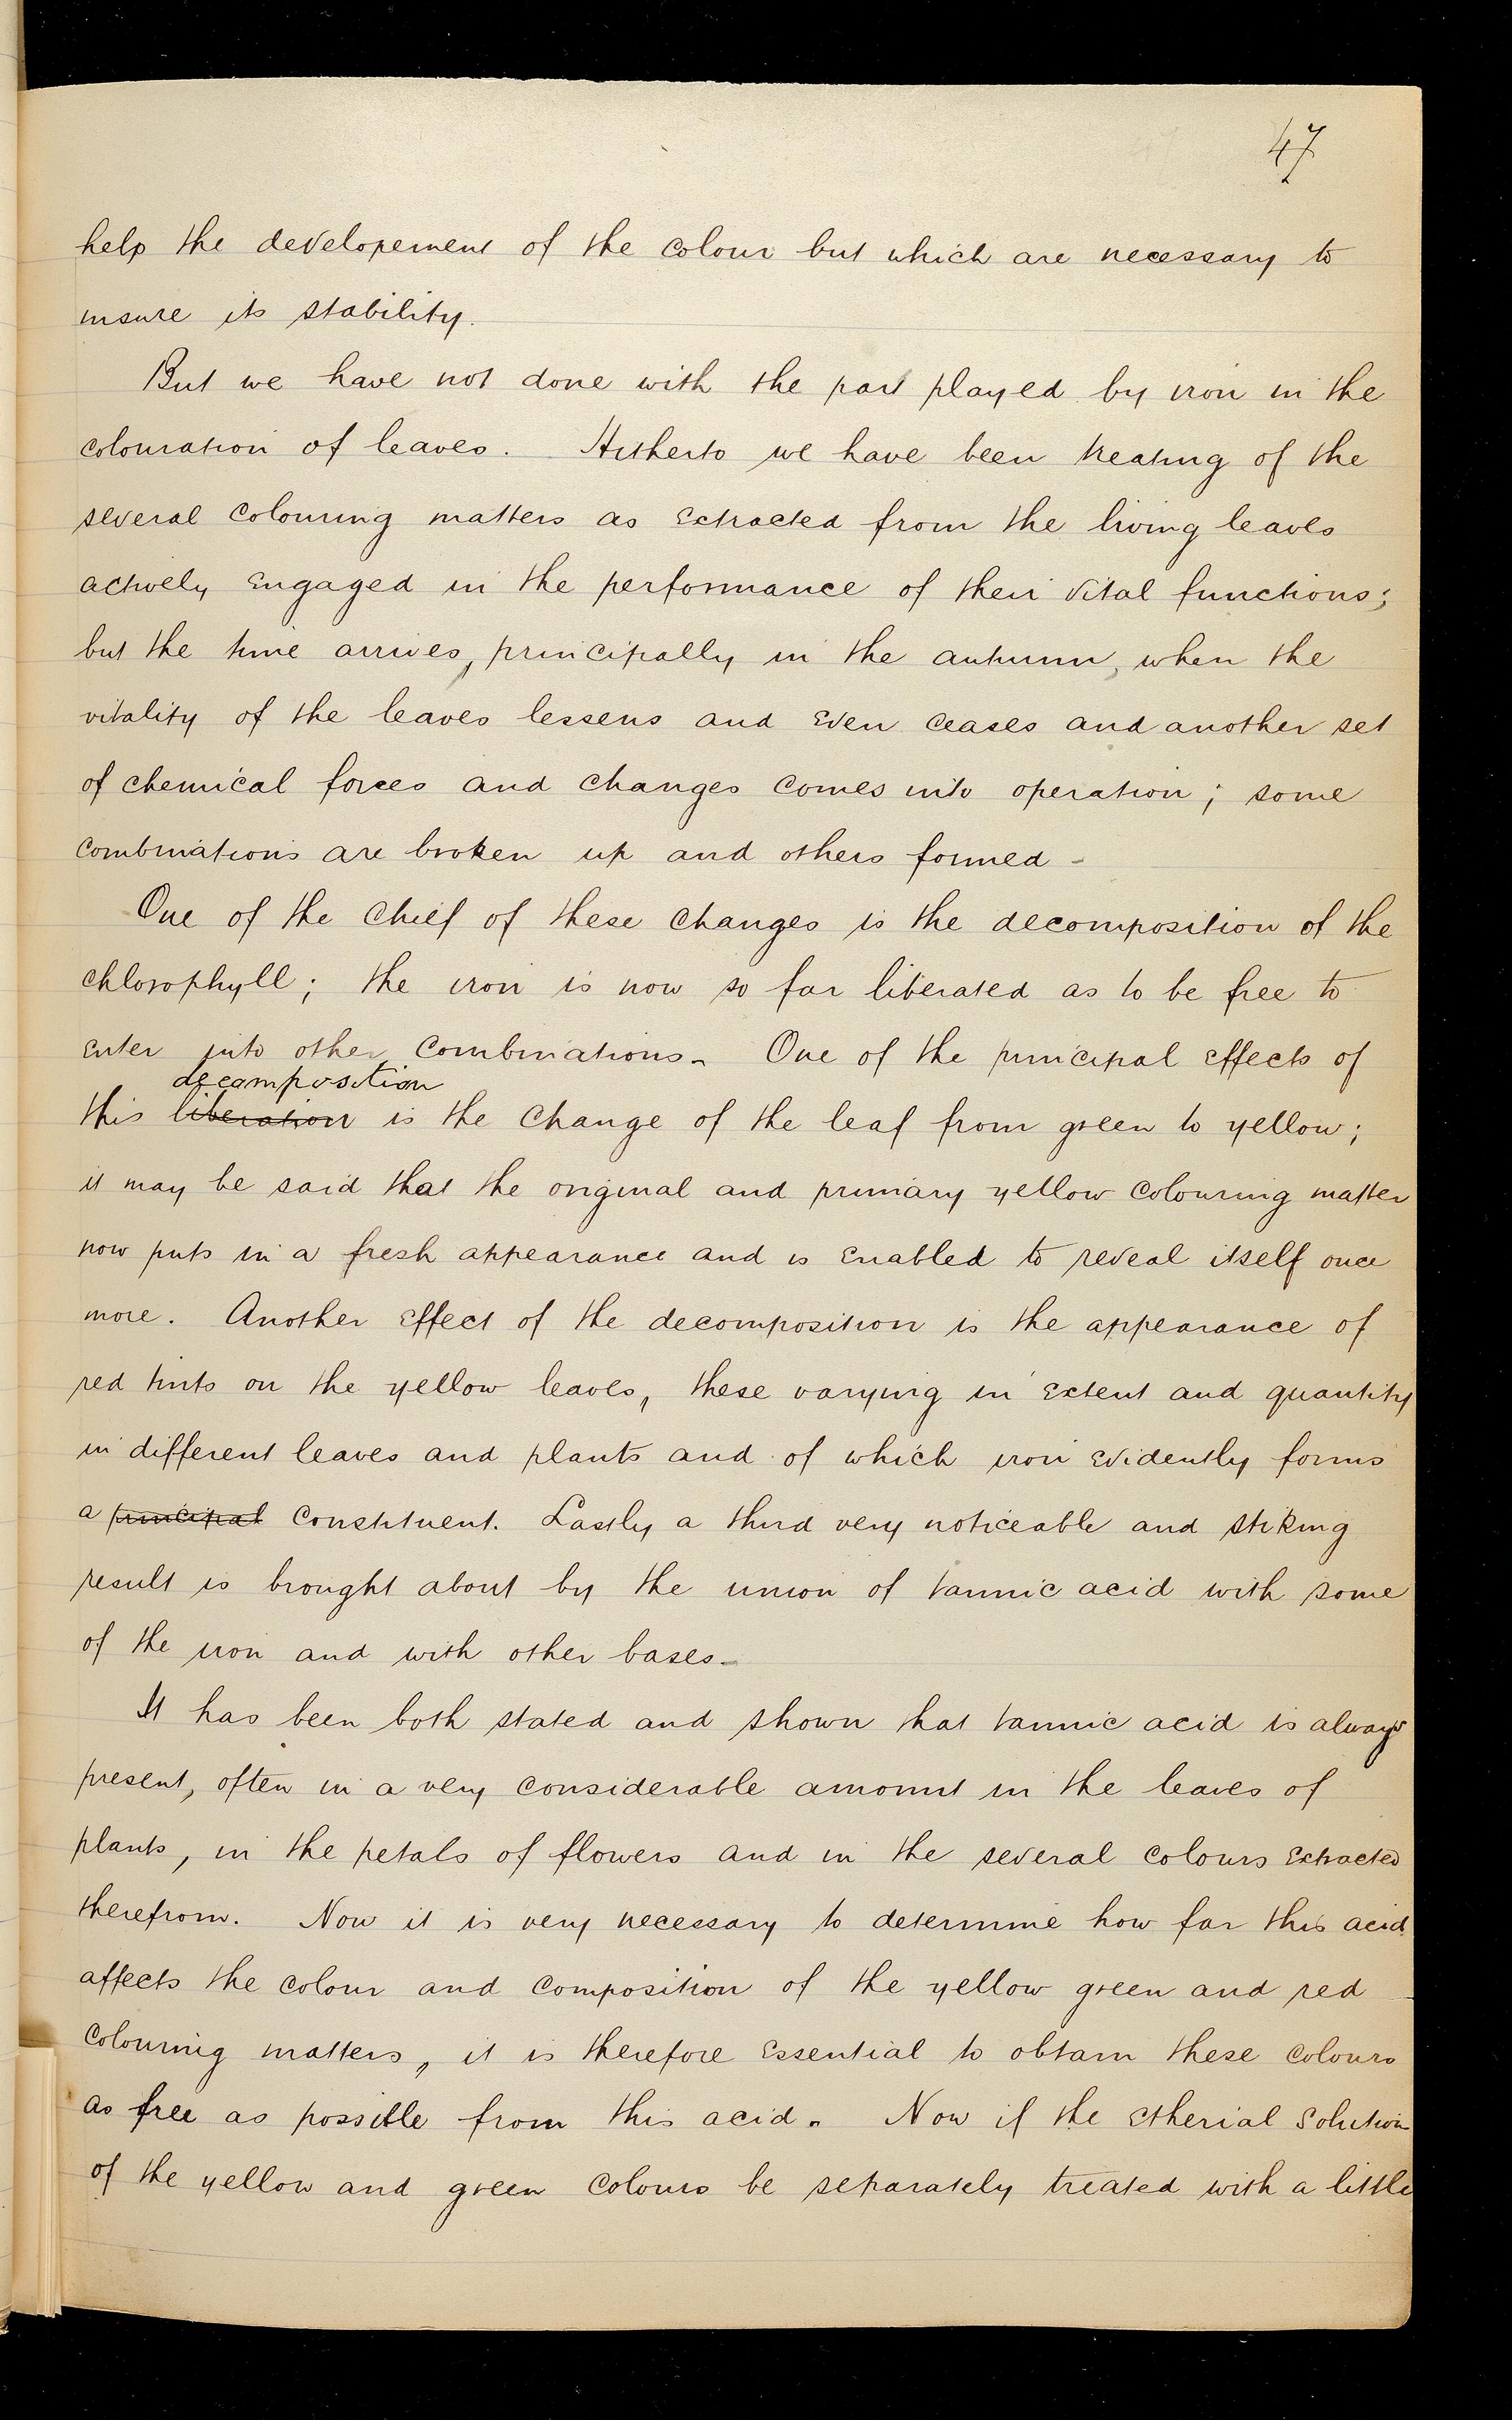 47
help the developement of the colour but which are necessary to
insure its stability.
But we have not done with the part played by iron in the
colouration of leaves. Hitherto we have been treating of the
several colouring matters as extracted from the living leaves
actively engaged in the performance of their vital functions;
but the time arrives, principally in the autumn, when the
vitality of the leaves lessens and even ceases and another set
of chemical forces and changes comes into operation; some
combinations are broken up and others formed -
One of the chief of these changes is the decomposition of the
chlorophyll; the iron is now so far liberated as to be free to
enter into other combinations. One of the principal effects of
decomposition
this liberation is the change of the leaf from green to yellow;
it may be said that the original and primary yellow colouring matter
now puts in a fresh appearance and is enabled to reveal itself once
more. Another effect of the decomposition is the appearance of
red tints on the yellow leaves, these varying in extent and quantity
in different leaves and plants and of which iron evidently forms
a principal constituent. Lastly a third very noticeable and stiking
result is brought about by the union of tannic acid with some
of the iron and with other bases -
It has been both stated and shown that tannic acid is always
present, often in a very considerable amount in the leaves of
plants, in the petals of flowers and in the several colours extracted
therefrom. Now it is very necessary to determine how far this acid
affects the colour and composition of the yellow green and red
colouring matters, it is therefore essential to obtain these colours
as free as possible from this acid. Now if the etherial solution
of the yellow and green colours be separately treated with a little